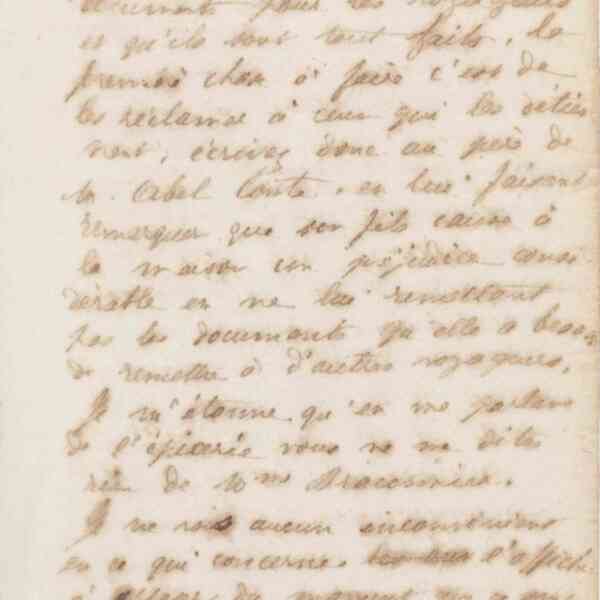 documents pour les voyageurs
et qu'ils sont tout faits, la
première chose à faire c'est de
les réclamer à ceux qui les détien
nent, écrivez donc au père de
M. Abel Conte, en lui faisant
remarquer que son fils cause à
la maison un préjudice consi
dérable en ne lui remettant
pas les documents qu'elle a besoin
de remettre à d'autres voyageurs.
Je m'étonne qu'en me parlant
de l'épicerie vous ne me dites
rien de
Je ne vois aucun inconvénient
en ce qui concerne l'affich
du moment